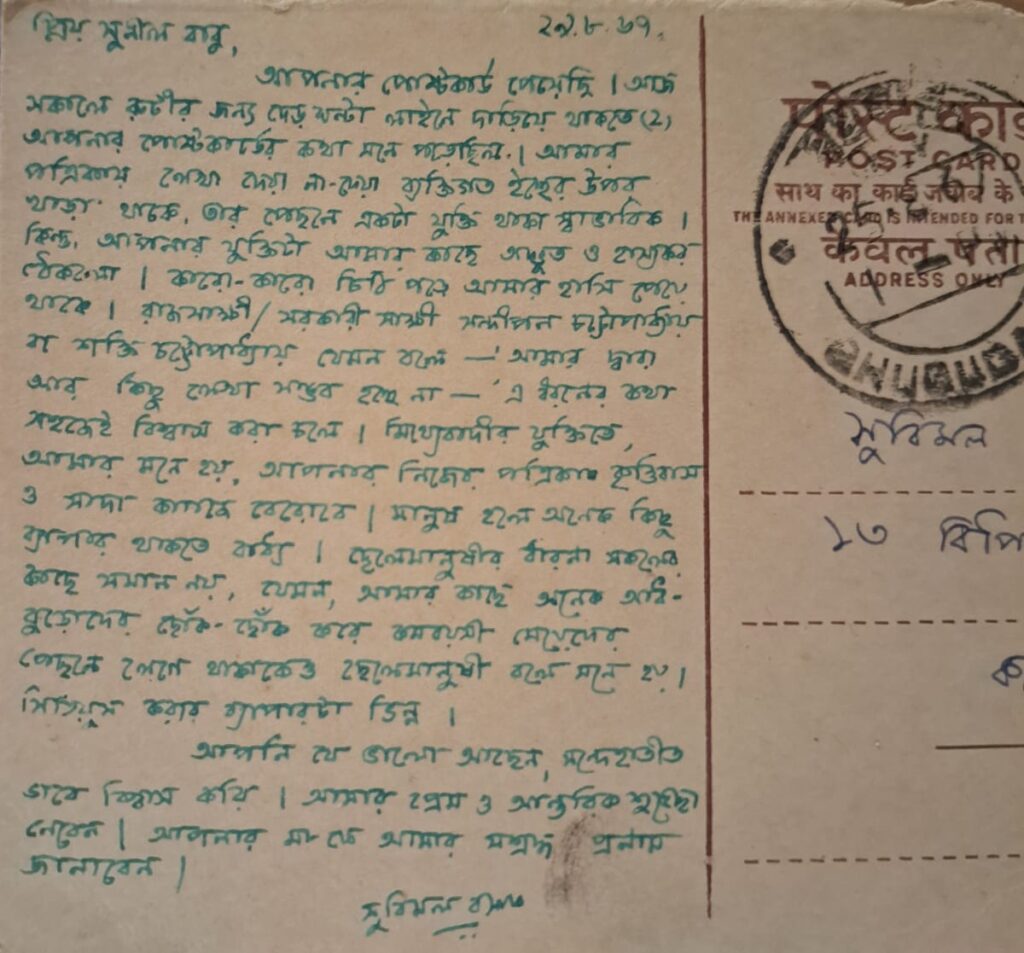 প্রিয় সুনীল বাবু,
২৯.৮.৬৭.
আপনার পোস্টকার্ড পেয়েছি । আজ
সকালে রুটীর জন্য দেড় ঘন্টা লাইনে দাড়িয়ে থাকতে (২)
আপনার পোস্টকার্ডের কথা মনে পড়েছিল । আমার
পত্রিকায় লেখা দেয়া না-দেয়া ব্যক্তিগত ইচ্ছের উপর
খাড়া থাকে, তার পেছনে একটা যুক্তি থাকা স্বাভাবিক ।
কিন্তু, আপনার যুক্তিটা আমার কাছে অদ্ভুত ও হাস্যকর
ঠেকলো । কারো-কারো চিঠি পড়ে আমার হাসি পেয়ে
থাকে । রাজসাক্ষী/সরকারী সাক্ষী সন্দীপন চট্টোপাধ্যায়
বা শক্তি চট্টোপাধ্যায় যেমন বলে — 'আমার দ্বারা
আর কিছু লেখা সম্ভব হচ্ছে না —' এ ধরনের কথা
সহজেই বিশ্বাস করা চলে । মিথ্যেবাদীর যুক্তিতে,
আমার মনে হয়, আপনার নিজের পত্রিকা কৃত্তিবাস
ও সাদা কাগজে বেরোবে । মানুষ হলে অনেক কিছু
ব্যাপার থাকতে বাধ্য । ছেলেমানুষীর ধারনা সকলের
কাছে সমান নয়, যেমন, আমার কাছে অনেক আধ-
বুড়োদের ছোঁক-ছোঁক করে কমবয়সী মেয়েদের
পেছনে লেগে থাকাকেও ছেলেমানুষী বলে মনে হয় ।
করার ব্যাপারটা ভিন্ন ।
আপনি যে ভালো আছেন, সন্দেহাতীত
ভাবে বিশ্বাস করি । আমার প্রেম ও আন্তরিক শুভেচ্ছা
নেবেন । আপনার মা-কে আমার সশ্রদ্ধ প্রনাম
জানাবেন ।
সুবিমল বসাক
पोस्ट कार्ड
POST CARD
साथ का कार्ड जवाब के
THE ANNEXED CARD IS INTENDED FOR
केवल पता
ADDRESS ONLY
সুবিমল
১৩ বিপি
ক